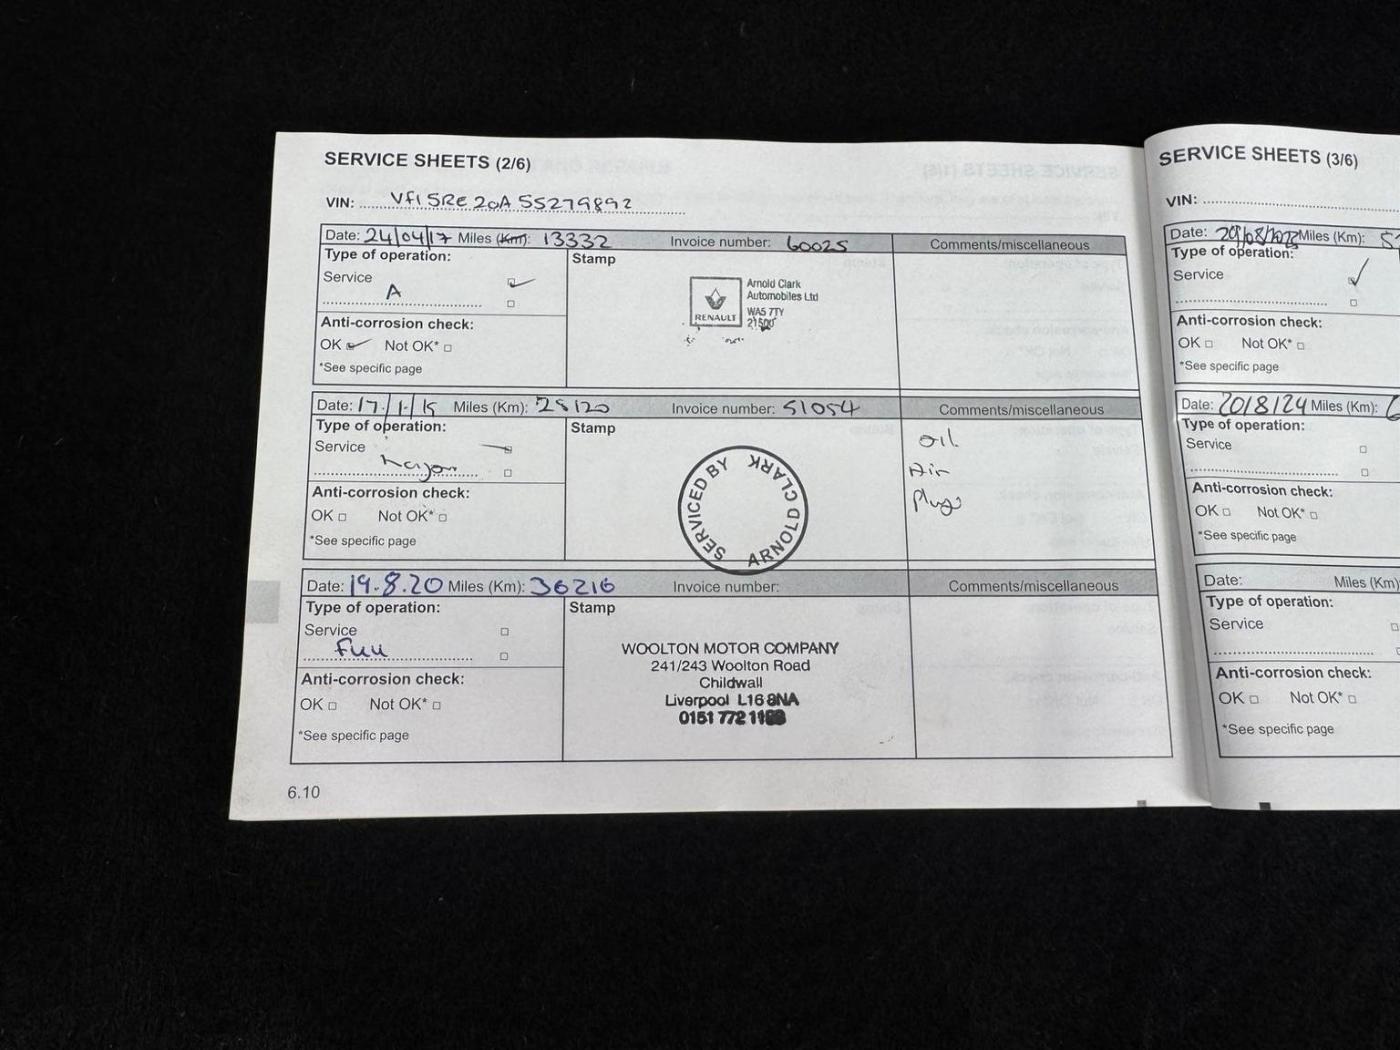 SERVICE SHEETS (2/6)
VIN: VF15RE20A55279892
Date: 24/04/17 Miles (Km): 13332 Invoice number: 60025 Comments/miscellaneous
Type of operation: Stamp
Service
A
Arnold Clark
Automobiles Ltd
WA5 7TY
RENAULT
Anti-corrosion check:
OK Not OK*
*See specific page
Date: 17/1/ Miles (Km): 25120 Invoice number: 51054 Comments/miscellaneous
Type of operation: Stamp
Service
SERVICED BY ARNOLD CLARK
Oil
Air
Plugs
Anti-corrosion check:
OK Not OK*
*See specific page
Date: 19.8.20 Miles (Km): 36216 Invoice number: Comments/miscellaneous
Type of operation: Stamp
Service
Full
WOOLTON MOTOR COMPANY
241/243 Woolton Road
Childwall
Liverpool L16 8NA
0151 772
Anti-corrosion check:
OK Not OK*
*See specific page
6.10
SERVICE SHEETS (3/6)
VIN:
Date: Miles (Km):
Type of operation:
Service
Anti-corrosion check:
OK Not OK*
*See specific page
Date: 20/8/24 Miles (Km):
Type of operation:
Service
Anti-corrosion check:
OK Not OK*
*See specific page
Date: Miles (Km)
Type of operation:
Service
Anti-corrosion check:
OK Not OK*
*See specific page